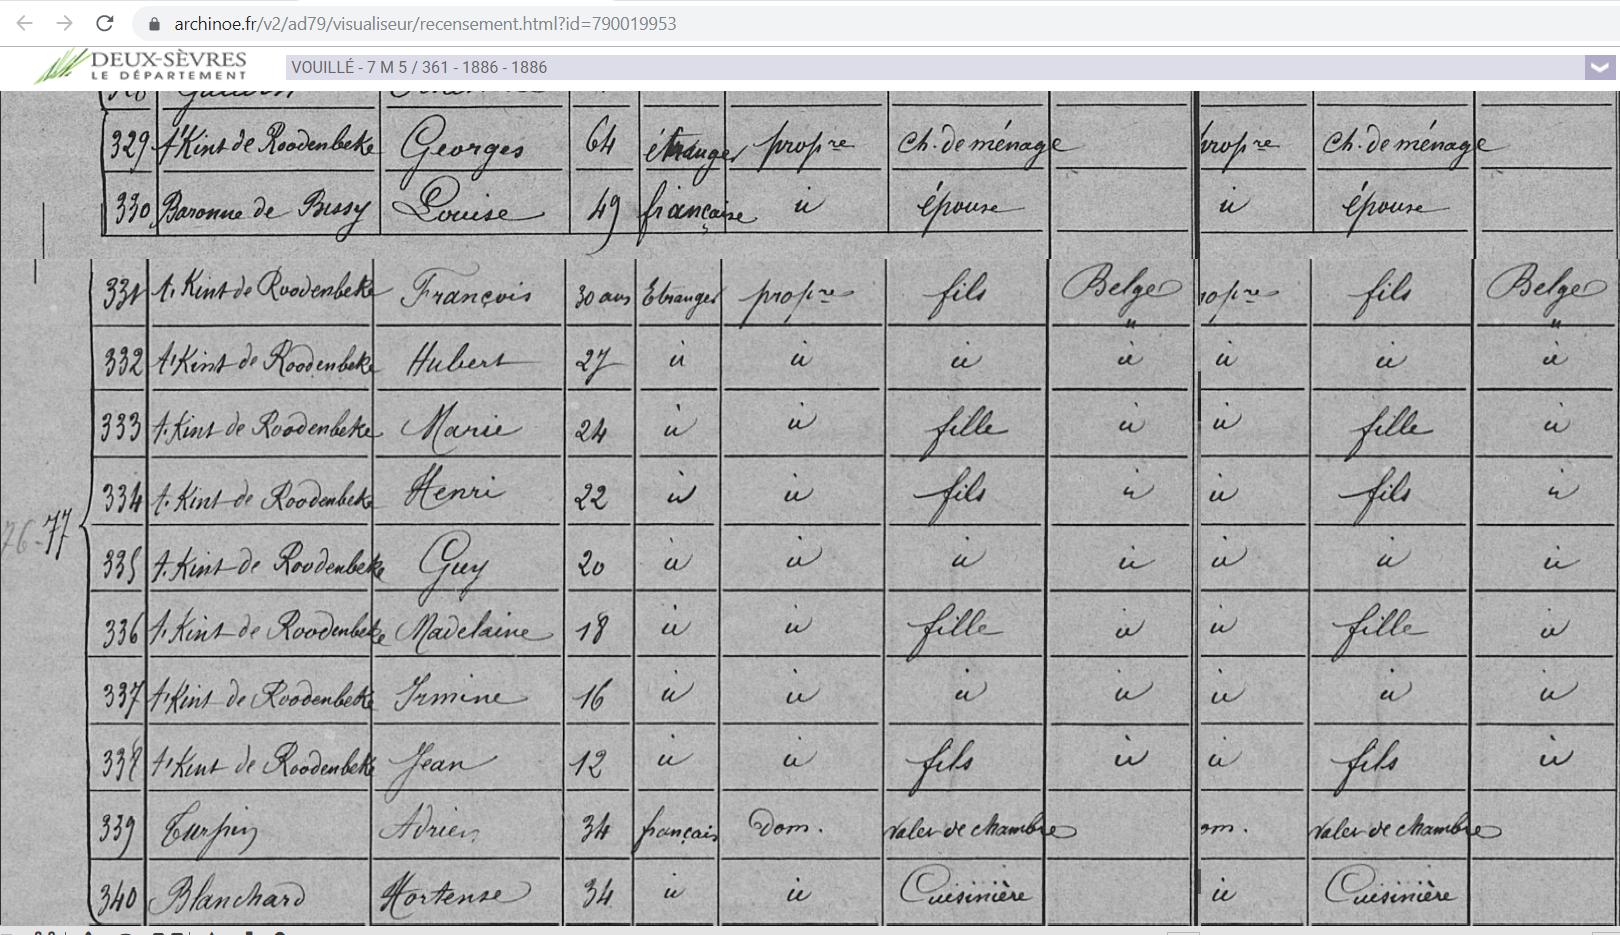 archinoe.fr/v2/ad79/visualiseur/recensement.html?id=790019953
DEUX-SÈVRES
LE DÉPARTEMENT
VOUILLÉ - 7 M 5 / 361 - 1886 - 1886
329 t'Kint de Roodenbeke Georges 64 étranger propre Ch. de ménage propre Ch. de ménage
330 Baronne de Bissy Louise 49 française id épouse id épouse
331 t. Kint de Roodenbeke François 30 ans Etranger propre fils Belge opre fils Belge
332 t'Kint de Roodenbeke Hubert 27 id id id id id id id
333 t. Kint de Roodenbeke Marie 24 id id fille id id fille id
334 t. Kint de Roodenbeke Henri 22 id id fils id id fils id
76-77
335 t. Kint de Roodenbeke Guy 20 id id id id id id id
336 t. Kint de Roodenbeke Madelaine 18 id id fille id id fille id
337 t'Kint de Roodenbeke Irmine 16 id id id id id id id
338 t'Kint de Roodenbeke Jean 12 id id fils id id fils id
339 Turpin Adrien 34 français Dom. valet de chambre om. valet de chambre
340 Blanchard Hortense 34 id id Cuisinière id Cuisinière